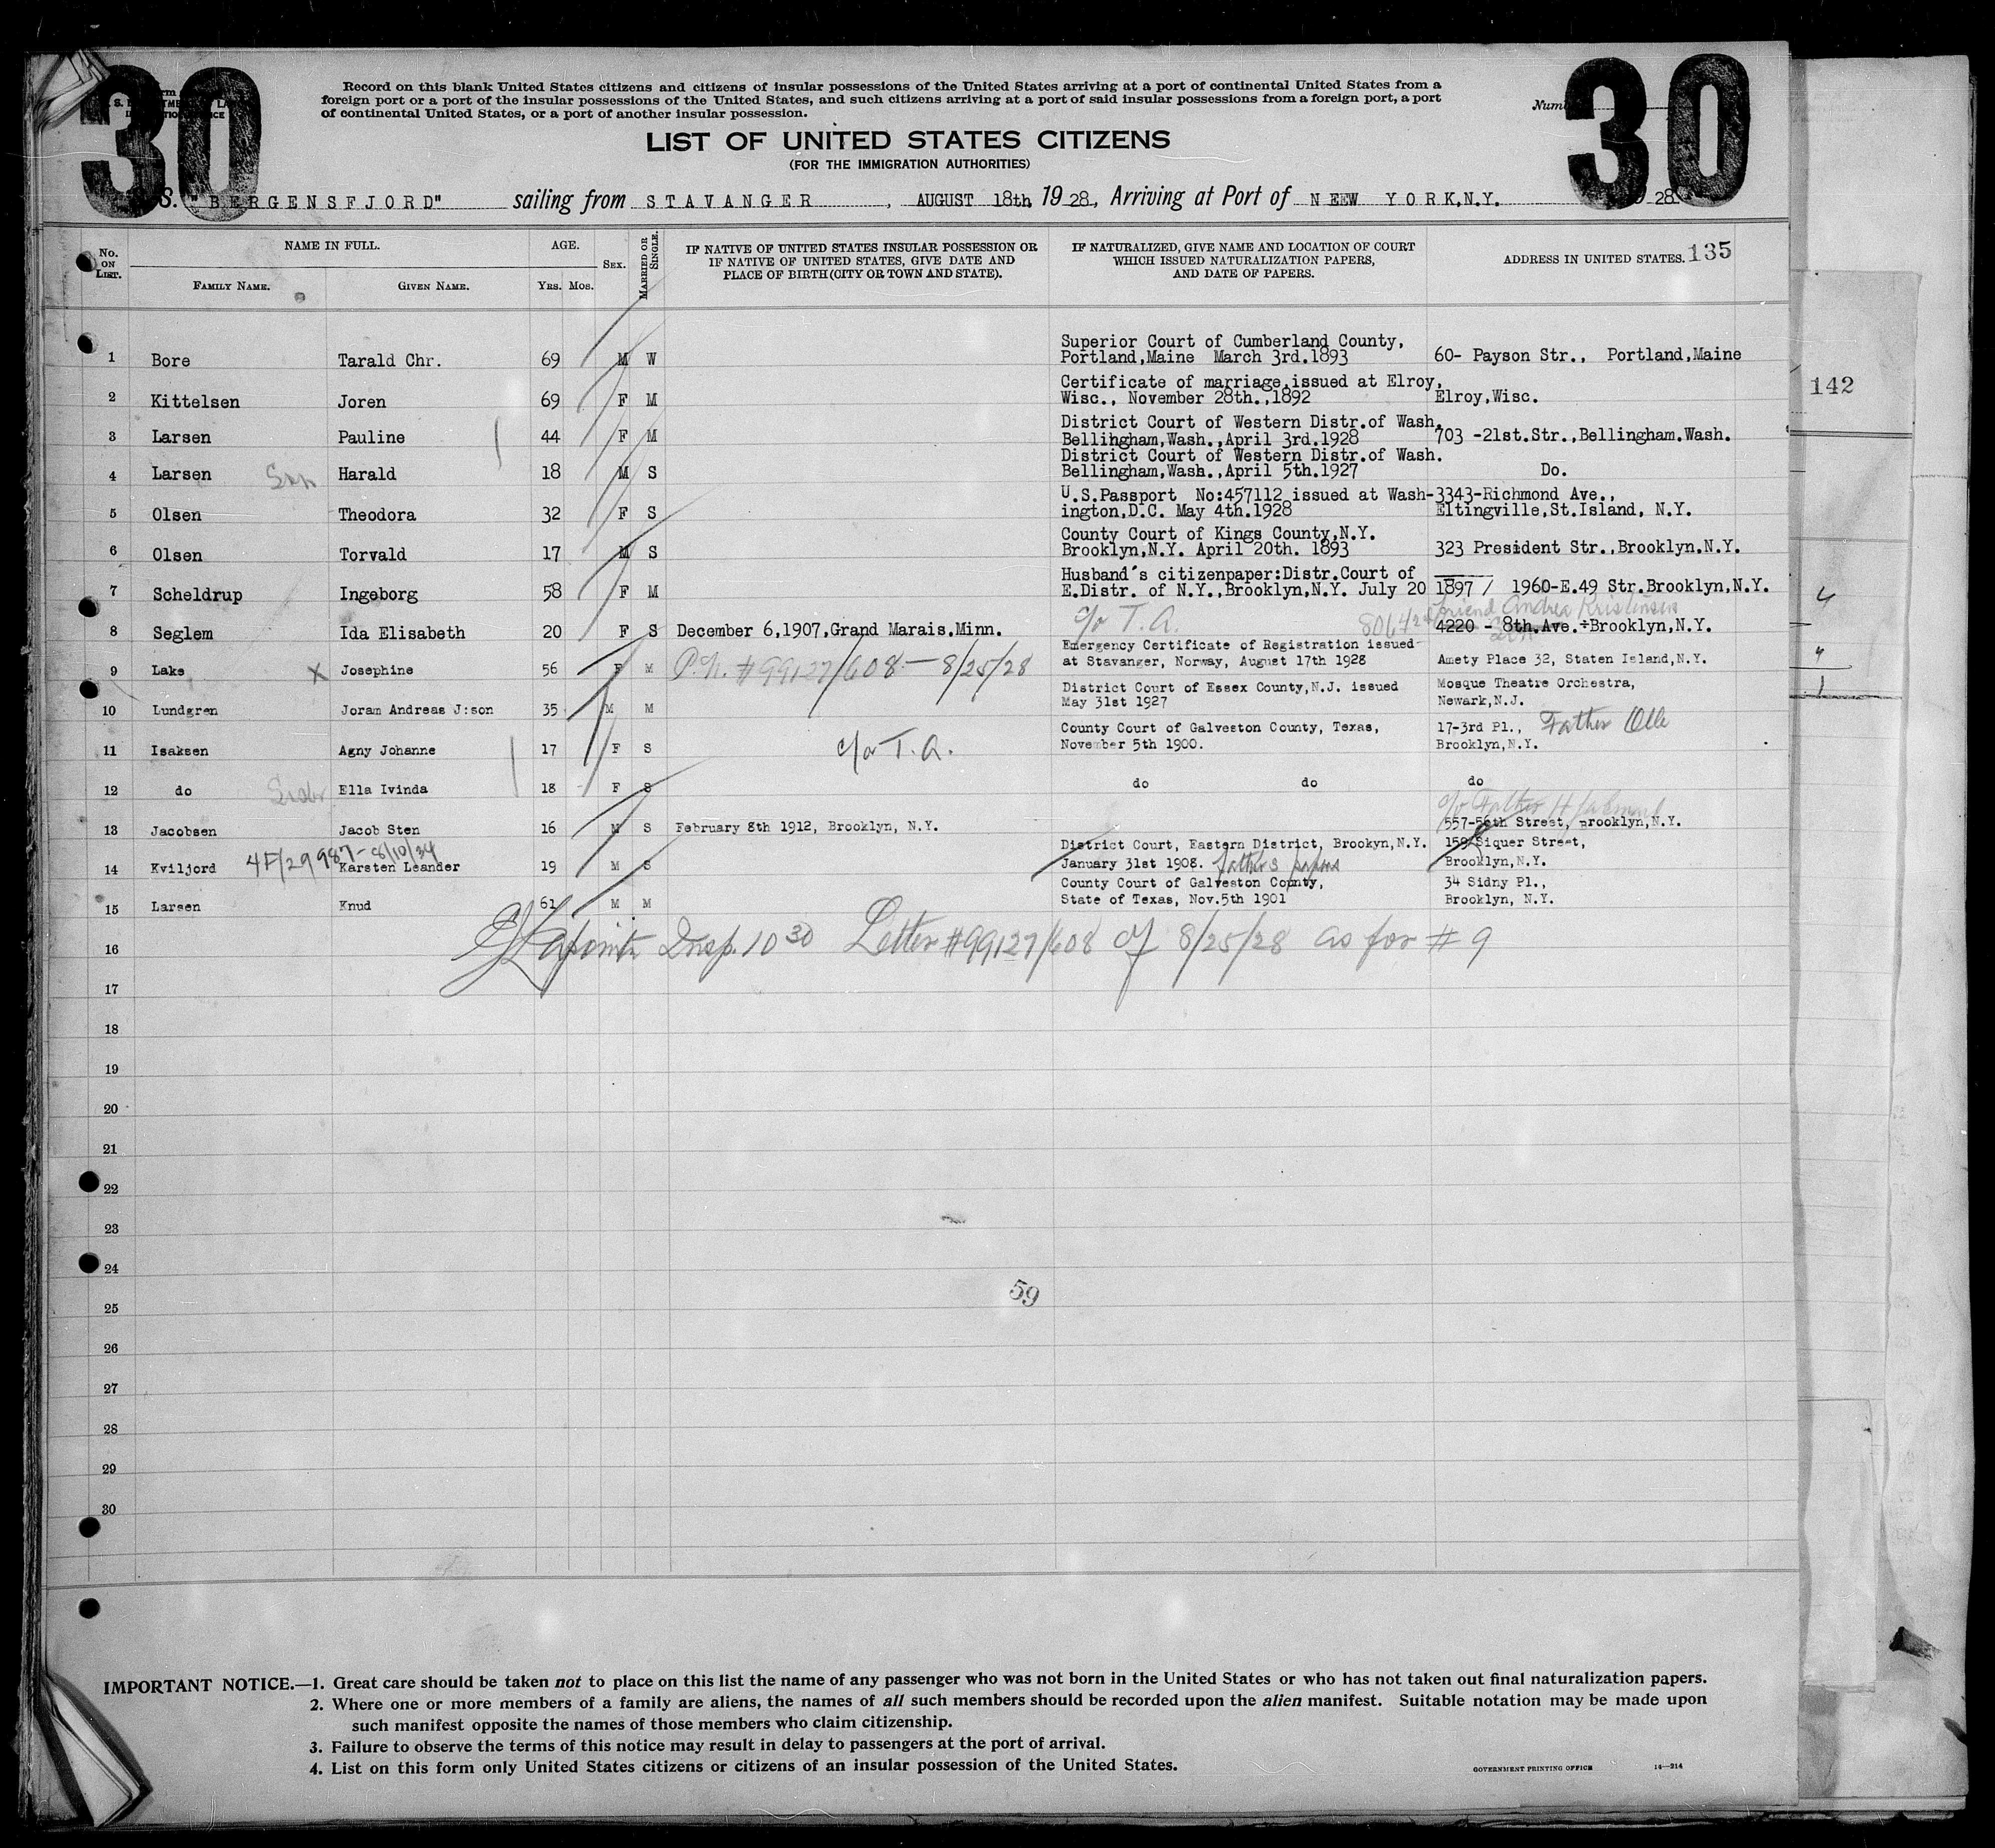 30
30
Record on this blank United States citizens and citizens of insular possessions of the United States arriving at a port of continental United States from a
foreign port or a port of the insular possessions of the United States, and such citizens arriving at a port of said insular possessions from a foreign port, a port
of continental United States, or a port of another insular possession.
LIST OF UNITED STATES CITIZENS
(FOR THE IMMIGRATION AUTHORITIES)
S. "BERGENSFJORD" sailing from STAVANGER, AUGUST 18th 19 28, Arriving at Port of NEEW YORK.N.Y. 28
No. ON LIST. NAME IN FULL. FAMILY NAME. GIVEN NAME. AGE. YRS. MOS. SEX. MARRIED OR SINGLE.
IF NATIVE OF UNITED STATES INSULAR POSSESSION OR
IF NATIVE OF UNITED STATES, GIVE DATE AND
PLACE OF BIRTH (CITY OR TOWN AND STATE).
IF NATURALIZED, GIVE NAME AND LOCATION OF COURT
WHICH ISSUED NATURALIZATION PAPERS,
AND DATE OF PAPERS.
ADDRESS IN UNITED STATES. 135
142
Superior Court of Cumberland County,
1 Bore Tarald Chr. 69 M W Portland,Maine March 3rd.1893 60- Payson Str., Portland,Maine
Certificate of marriage,issued at Elroy,
2 Kittelsen Joren 69 F M Wisc., November 28th.,1892 Elroy,Wisc.
District Court of Western Distr.of Wash.
3 Larsen Pauline 44 F M Bellihgham,Wash.,April 3rd.1928 703 -21st.Str.,Bellingham.Wash.
District Court of Western Distr.of Wash.
4 Larsen Son Harald 18 M S Bellingham,Wash.,April 5th.1927 Do.
U.S.Passport No:457112 issued at Wash- 3343-Richmond Ave.,
5 Olsen Theodora 32 F S ington,D.C. May 4th.1928 Eltingville,St.Island, N.Y.
County Court of Kings County,N.Y.
6 Olsen Torvald 17 M S Brooklyn,N.Y. April 20th. 1893 323 President Str.,Brooklyn.N.Y.
Husband's citizenpaper:Distr.Court of
7 Scheldrup Ingeborg 58 F M E.Distr. of N.Y.,Brooklyn,N.Y. July 20 1897 / 1960-E.49 Str.Brooklyn,N.Y.
c/o T.A. friend Andrea Kristensen
8 Seglem Ida Elisabeth 20 F S December 6,1907,Grand Marais.Minn. 4220 - 8th.Ave.÷Brooklyn,N.Y.
Emergency Certificate of Registration issued
9 Lake X Josephine 56 F M P.N. #99127/608 - 8/25/28 at Stavanger, Norway, August 17th 1928 Amety Place 32, Staten Island,N.Y.
District Court of Essex County,N.J. issued Mosque Theatre Orchestra,
10 Lundgren Joram Andreas J:son 35 M M May 31st 1927 Newark,N.J.
County Court of Galveston County, Texas, 17-3rd Pl., Father Olle
11 Isaksen Agny Johanne 17 F S c/o T.A. November 5th 1900. Brooklyn,N.Y.
12 do Sister Ella Ivinda 18 F S do do do
c/o Father
13 Jacobsen Jacob Sten 16 M S February 8th 1912, Brooklyn, N.Y. 557-56th Street, Brooklyn,N.Y.
4F/29987-8/10/34 District Court, Eastern District, Brookyn,N.Y. 159 Siquer Street,
14 Kviljord Karsten Leander 19 M S January 31st 1908. father's papers Brooklyn,N.Y.
County Court of Galveston County, 34 Sidny Pl.,
15 Larsen Knud 61 M M State of Texas, Nov.5th 1901 Brooklyn, N.Y.
16 Insp. 10 30 Letter #99127/608 of 8/25/28 as for #9
17
18
19
20
21
22
23
24
59
25
26
27
28
29
30
IMPORTANT NOTICE.—1. Great care should be taken not to place on this list the name of any passenger who was not born in the United States or who has not taken out final naturalization papers.
2. Where one or more members of a family are aliens, the names of all such members should be recorded upon the alien manifest. Suitable notation may be made upon
such manifest opposite the names of those members who claim citizenship.
3. Failure to observe the terms of this notice may result in delay to passengers at the port of arrival.
4. List on this form only United States citizens or citizens of an insular possession of the United States.
GOVERNMENT PRINTING OFFICE 14—214